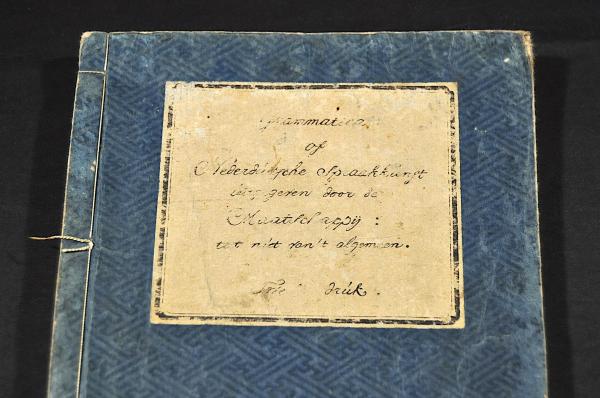 Grammatica
of
Nederduitsche Spraakkunst
uitgegeven door de
Maatschappij:
tot nut van't algemeen.
druk.